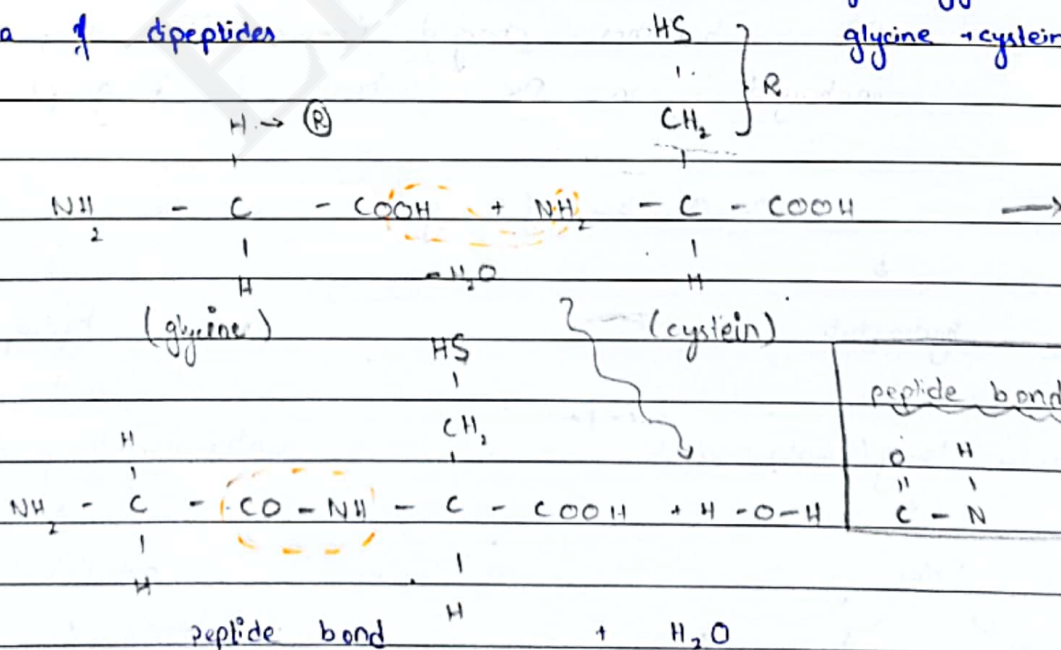 a of dipeptides
glycine + cystein
HS
CH2 } R
H → R
NH2 - C - COOH + NH2 - C - COOH →
H - H2O H
(glycine) (cystein)
HS
CH2
H
NH2 - C - CO - NH - C - COOH + H - O - H
H
H
peptide bond + H2O
peptide bond
O H
" ı
C - N